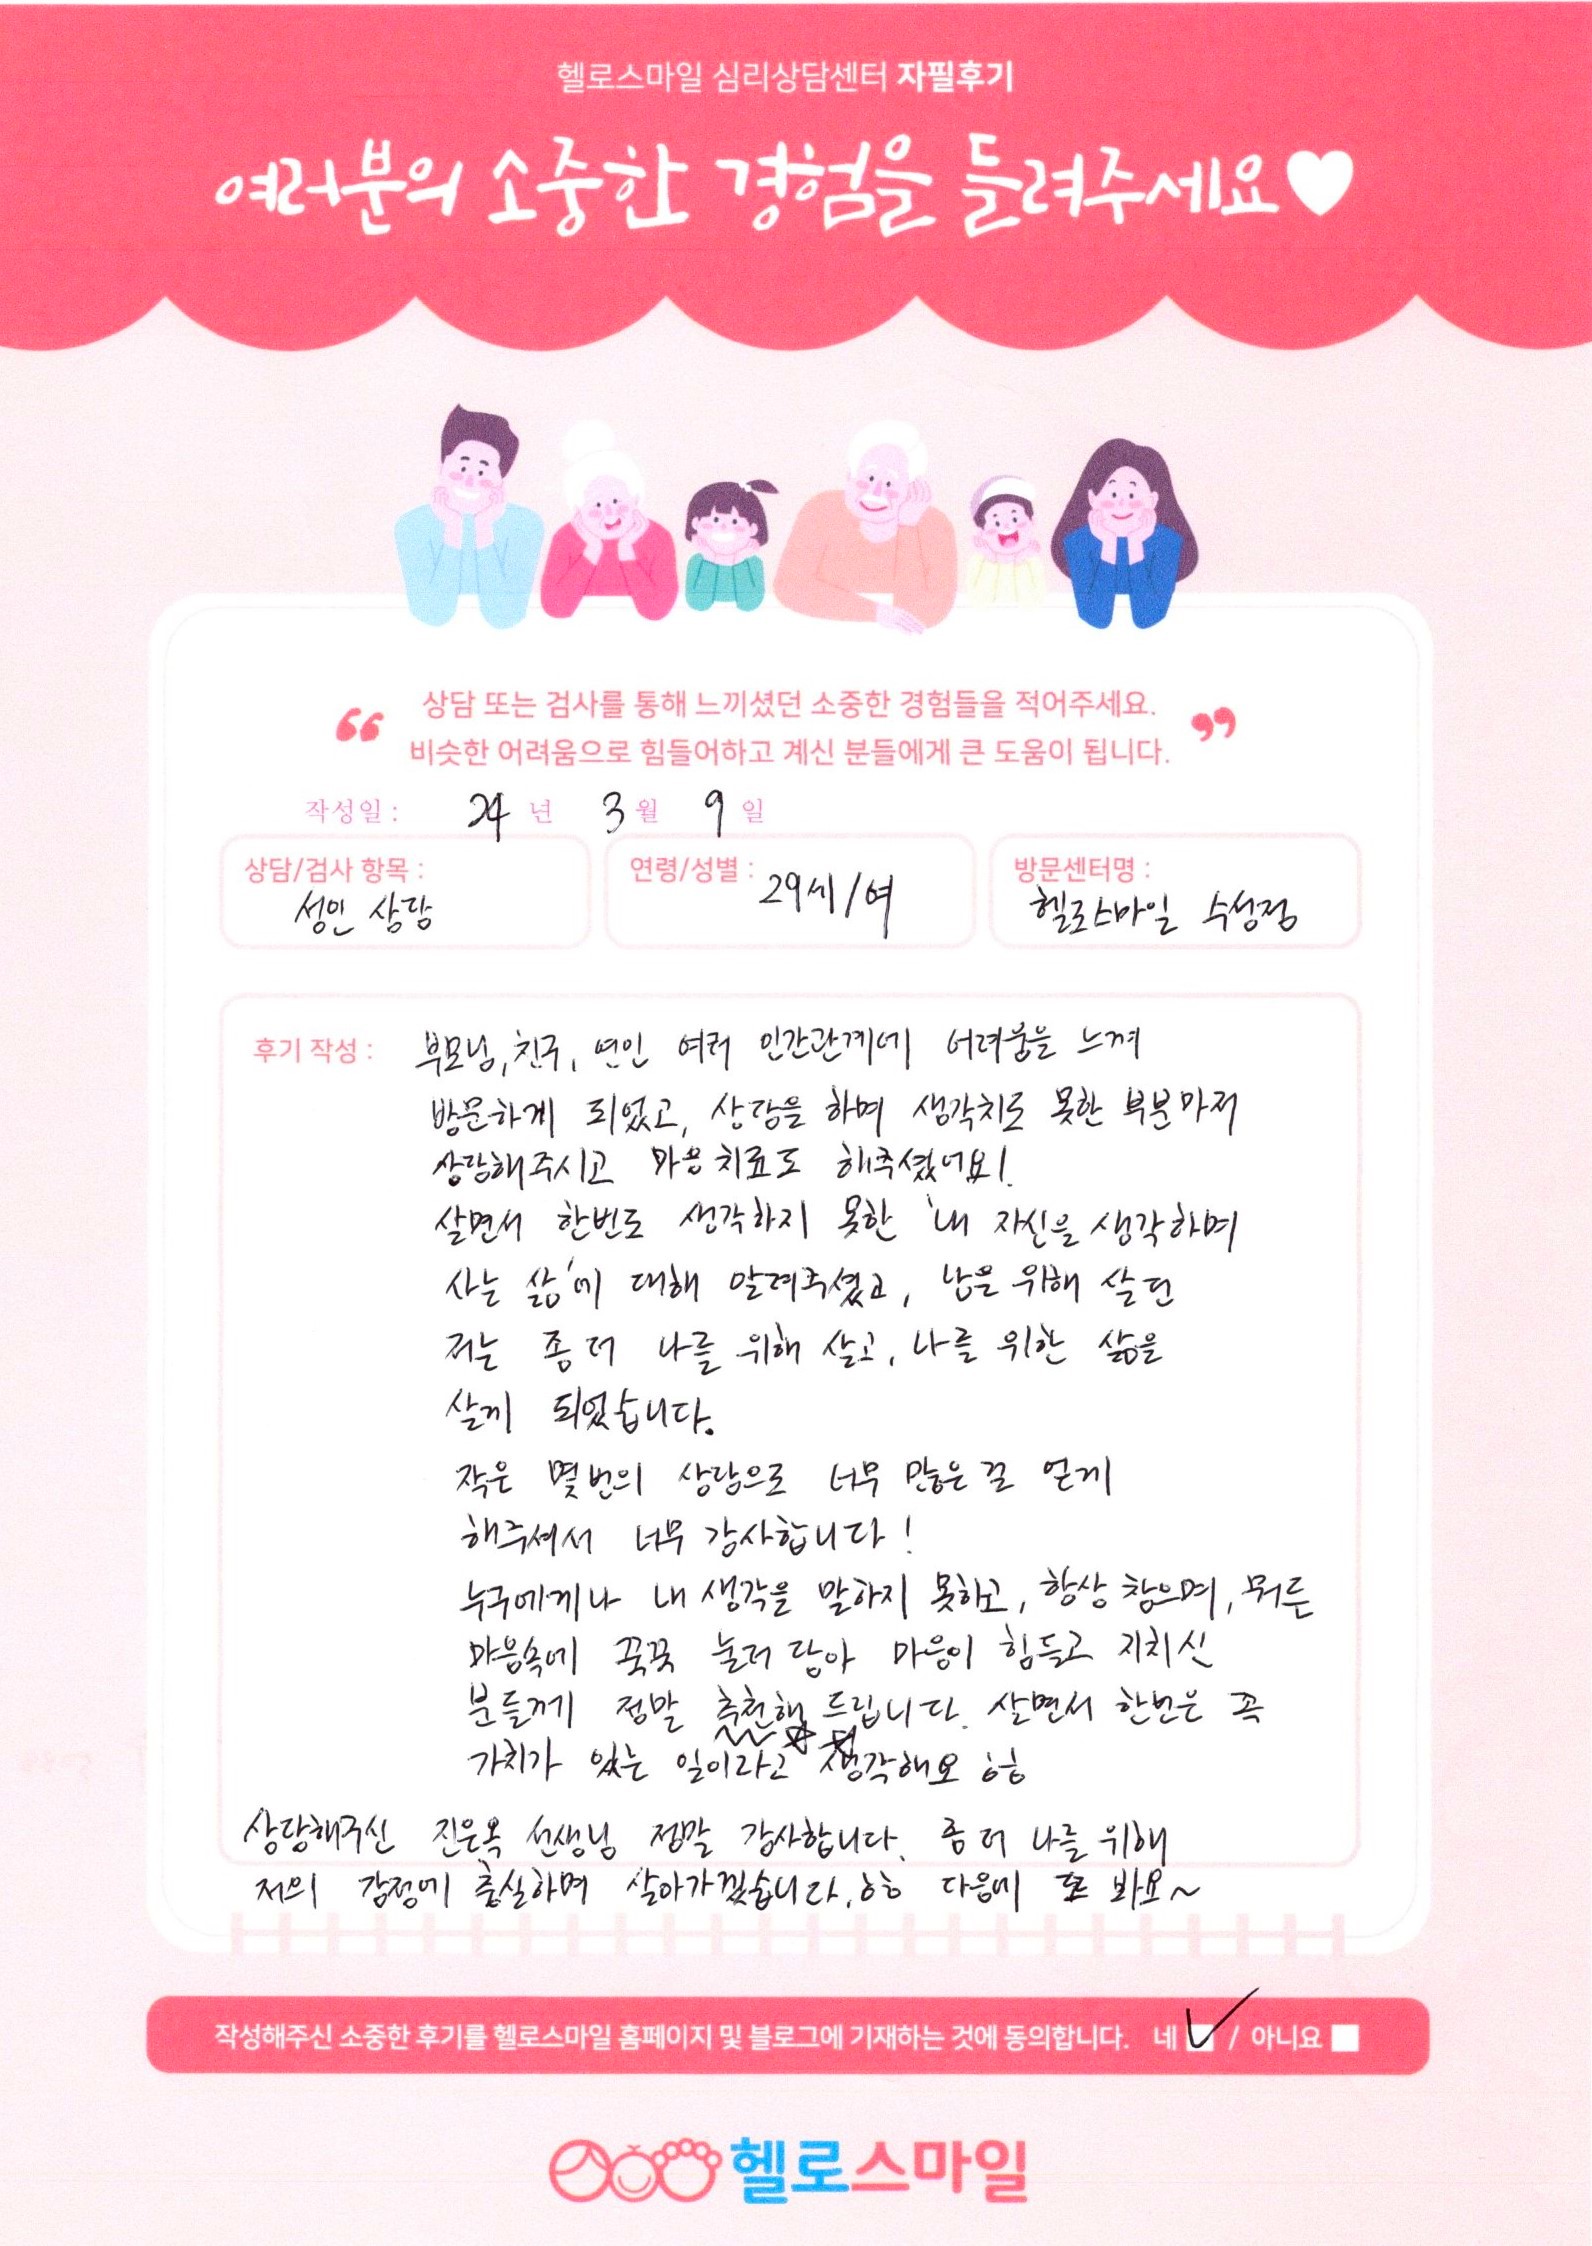 헬로스마일 심리상담센터 자필후기
여러분의 소중한 경험을 들려주세요♥
상담 또는 검사를 통해 느끼셨던 소중한 경험들을 적어주세요.
비슷한 어려움으로 힘들어하고 계신 분들에게 큰 도움이 됩니다.
작성일 : 24 년 3 월 9 일
상담/검사 항목 :
성인 상담
연령/성별 : 29세/여
방문센터명 :
헬로스마일 수성점
후기 작성 : 부모님, 친구, 연인 여러 인간관계에 어려움을 느껴
방문하게 되었고, 상담을 하며 생각치도 못한 부분마저
상담해주시고 마음 치료도 해주셨어요!
살면서 한번도 생각하지 못한 '내 자신을 생각하며
사는 삶'에 대해 알려주셨고, 남을 위해 살던
저는 좀 더 나를 위해 살고, 나를 위한 삶을
살게 되었습니다.
작은 몇번의 상담으로 너무 많은 걸 얻게
해주셔서 너무 감사합니다!
누구에게나 내 생각을 말하지 못하고, 항상 참으며, 뭐든
마음속에 꾹꾹 눌러 담아 마음이 힘들고 지치신
분들께 정말 추천해 드립니다. 살면서 한번은 꼭
가치가 있는 일이라고 생각해요 ㅎㅎ
상담해주신 진은옥 선생님 정말 감사합니다. 좀 더 나를 위해
저의 감정에 충실하며 살아가겠습니다.ㅎㅎ 다음에 또 봐요~
작성해주신 소중한 후기를 헬로스마일 홈페이지 및 블로그에 기재하는 것에 동의합니다. 네 ✓ / 아니요
헬로스마일